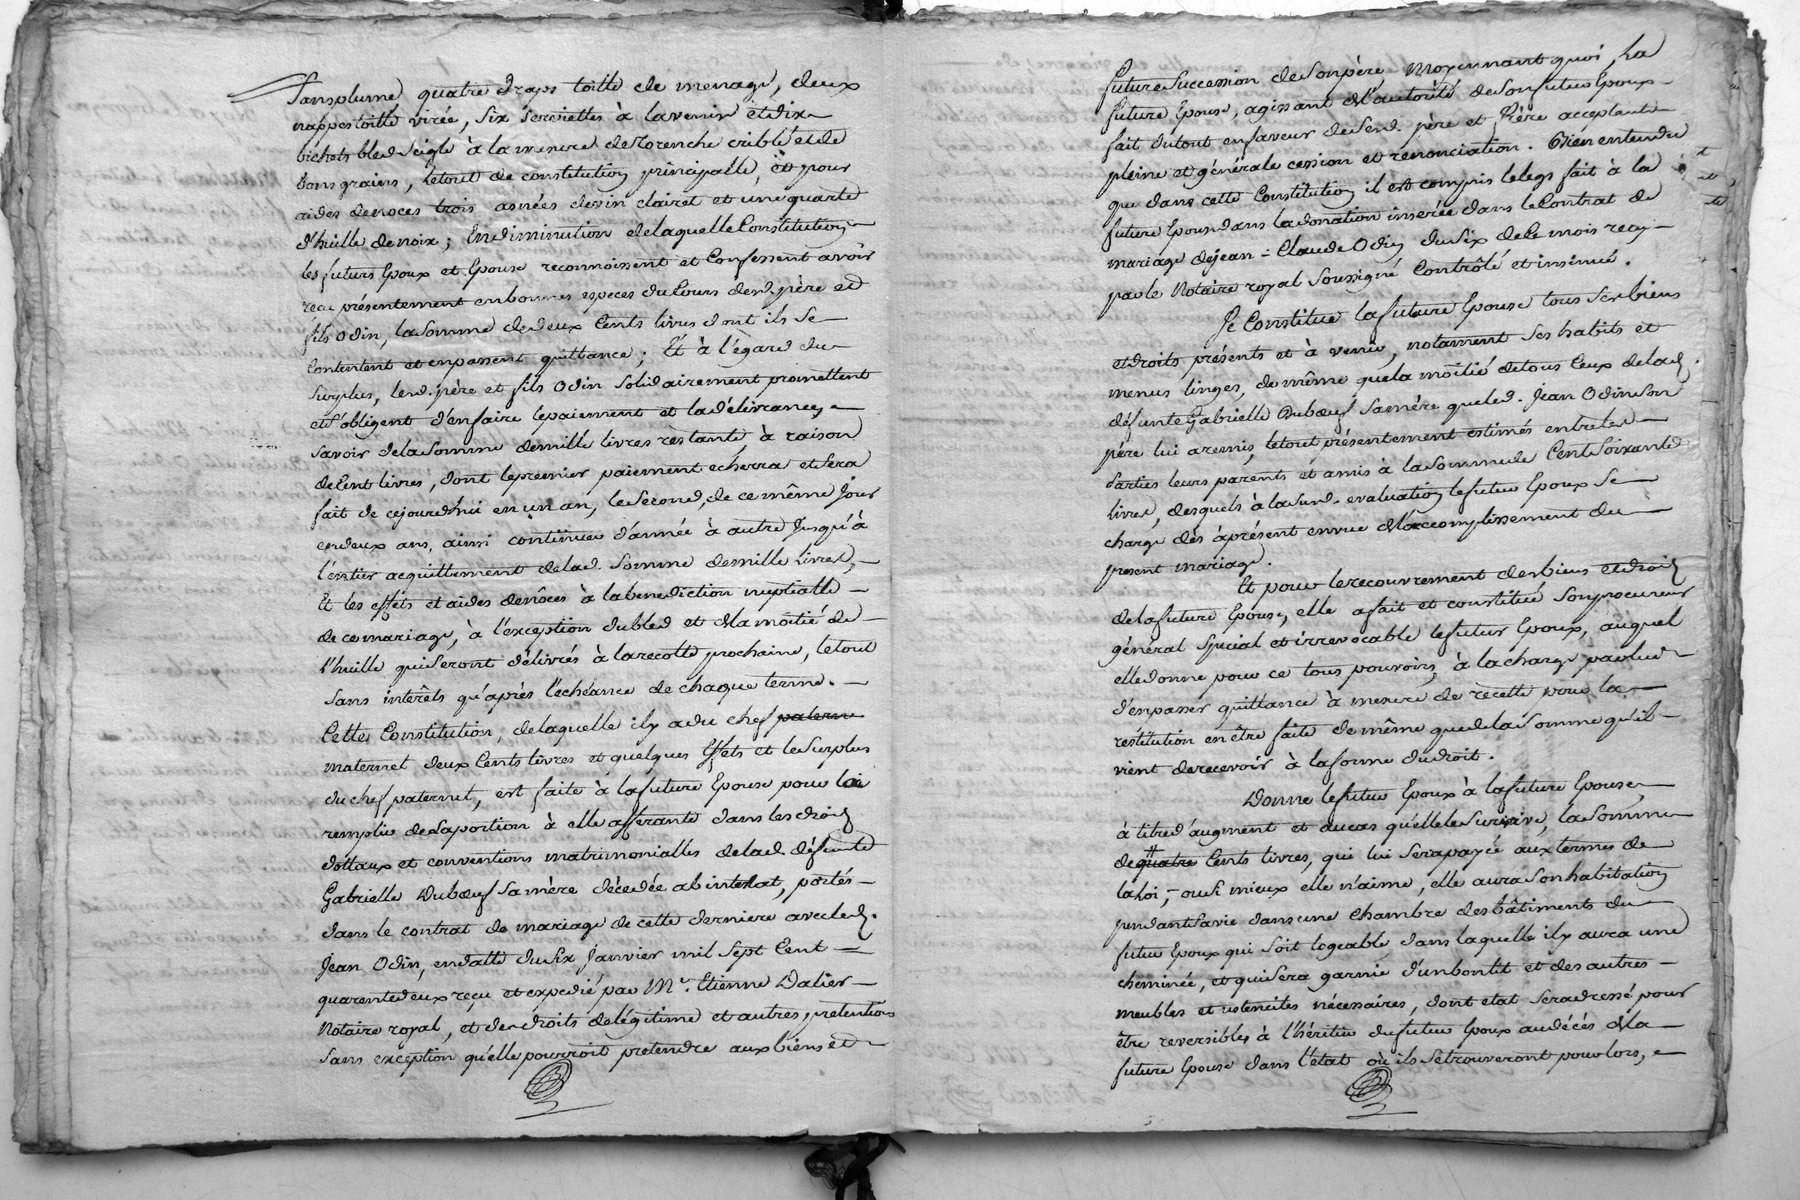 sans plume, quatre draps toille de menage, deux
nappes toille virée, six serviettes à la venir et dix
bichets bled seigle à la mesure de Torenche criblé et de
bons grains, le tout de constitution principalle, et pour
aides de noces trois asnées de vin clairet et une quarte
d'huille de noix; En diminution de laquelle Constitution
les futurs Epoux et Epouse reconnoissent et Confessent avoir
reçu présentement en bonnes especes du Cours desd. père et
fils Odin, la somme de deux Cents livres dont ils se
Contentent et en passent quittance; Et à l'égard du
surplus, lesd. père et fils Odin solidairement promettent
et s'obligent d'en faire le paiement et la délivrance,
savoir de la somme de mille livres restante, à raison
de Cent livres, dont le premier paiement echerra et sera
fait de cejourd'hui en un an, le second, de ce même jour
en deux ans, ainsi continuer d'année à autre jusqu'à
l'entier acquittement de lad. somme de mille livres,
Et les effets et aides de nôces à la benediction nuptialle
de ce mariage, à l'exception du bled et de la moitié de
l'huille qui seront délivrés à la recolte prochaine, le tout
sans intérêts qu'après l'échéance de chaque terme.
Cette Constitution, de laquelle il y a du chef paterne
maternel deux Cents livres et quelques Effets et le surplus
du chef paternel, est faite à la future Epouse pour la
remplir de sa portion à elle afférante dans les droits
dottaux et conventions matrimonialles de lad. défunte
Gabrielle Dubœuf sa mère décedée ab intestat, portés
dans le contrat de mariage de cette derniere avec led.
Jean Odin, en datte du six Janvier mil sept Cent
quarente deux reçu et expedié par Me. Etienne Dalier
Notaire royal, et des droits de légitime et autres pretentions
sans exception qu'elle pourroit pretendre aux biens et
future succession de son père, Moyennant quoi, la
future Epouse, agissant de l'autorité de son futur Epoux
fait du tout en faveur de sesd. père et frère acceptants
pleine et générale cession et renonciation. Bien entendu
que dans cette Constitution il est compris le legs fait à la
future Epouse dans la donation inserée dans le Contrat de
mariage de jean-Claude Odin du six de ce mois reçu
par le Notaire royal soussigné Contrôlé et insinué.
Se Constitue la future Epouse tous ses biens
et droits présents et à venir, notamment ses habits et
menus linges, de même que la moitié de tous Ceux de lad.
défunte Gabrielle Dubœuf sa mère que led. Jean Odin son
père lui a remis, le tout présentement estimés entre les
Parties leurs parents et amis à la somme de Cent soixante
livres, desquels à la susd. evaluation le futur Epoux se
charge dès à présent en vue de l'accomplissement du
present mariage.
Et pour le recouvrement des biens et droits
de la future Epouse, elle a fait et constitué son procureur
général special et irrevocable le futur Epoux, auquel
elle donne pour ce tous pouvoirs, à la charge par lui
d'en passer quittance à mesure de recette pour la
restitution en être faite de même que de la somme qu'il
vient de recevoir à la forme du droit.
Donne le futur Epoux à la future Epouse,
à titre d'augment et au cas qu'elle le survive, la somme
de quatre Cents livres, qui lui sera payée aux termes de
la loi, ou si mieux elle n'aime, elle aura son habitation
pendant sa vie dans une chambre des bâtiments du
futur Epoux qui soit logeable, dans laquelle il y aura une
cheminée, et qui sera garnie d'un bon lit et des autres
meubles et ustenciles nécessaires, dont etat sera dressé pour
être reversibles à l'héritier du futur Epoux au décés de la
future Epouse dans l'état où ils se trouveront pour lors,